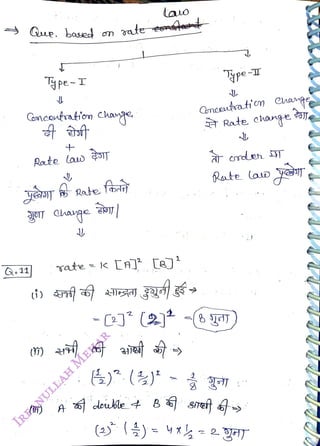 law
⇒ Que. based on rate constant
Type-I
Type-II
⇓
⇓
Concentration change,
दी होगी
+
Rate law देगा
पूछेगा कि Rate कितने
गुणा change होगा/
⇓
Concentration change
से Rate change देगा,
तो order या
Rate law पूछेगा
⇓
Q.11 rate = K [A]² [B]¹
(i) सभी की सान्द्रता दुगुनी हुई →
= [2]² [2]¹ = 8 गुना
(ii) सभी की आधी की ⇒
(1/2)² (1/2)¹ = 1/8 गुना
(iii) A की double + B की आधी की →
(2)² (1/2) = 4 × 1/2 = 2 गुना
IRFANULLAH MEHAR